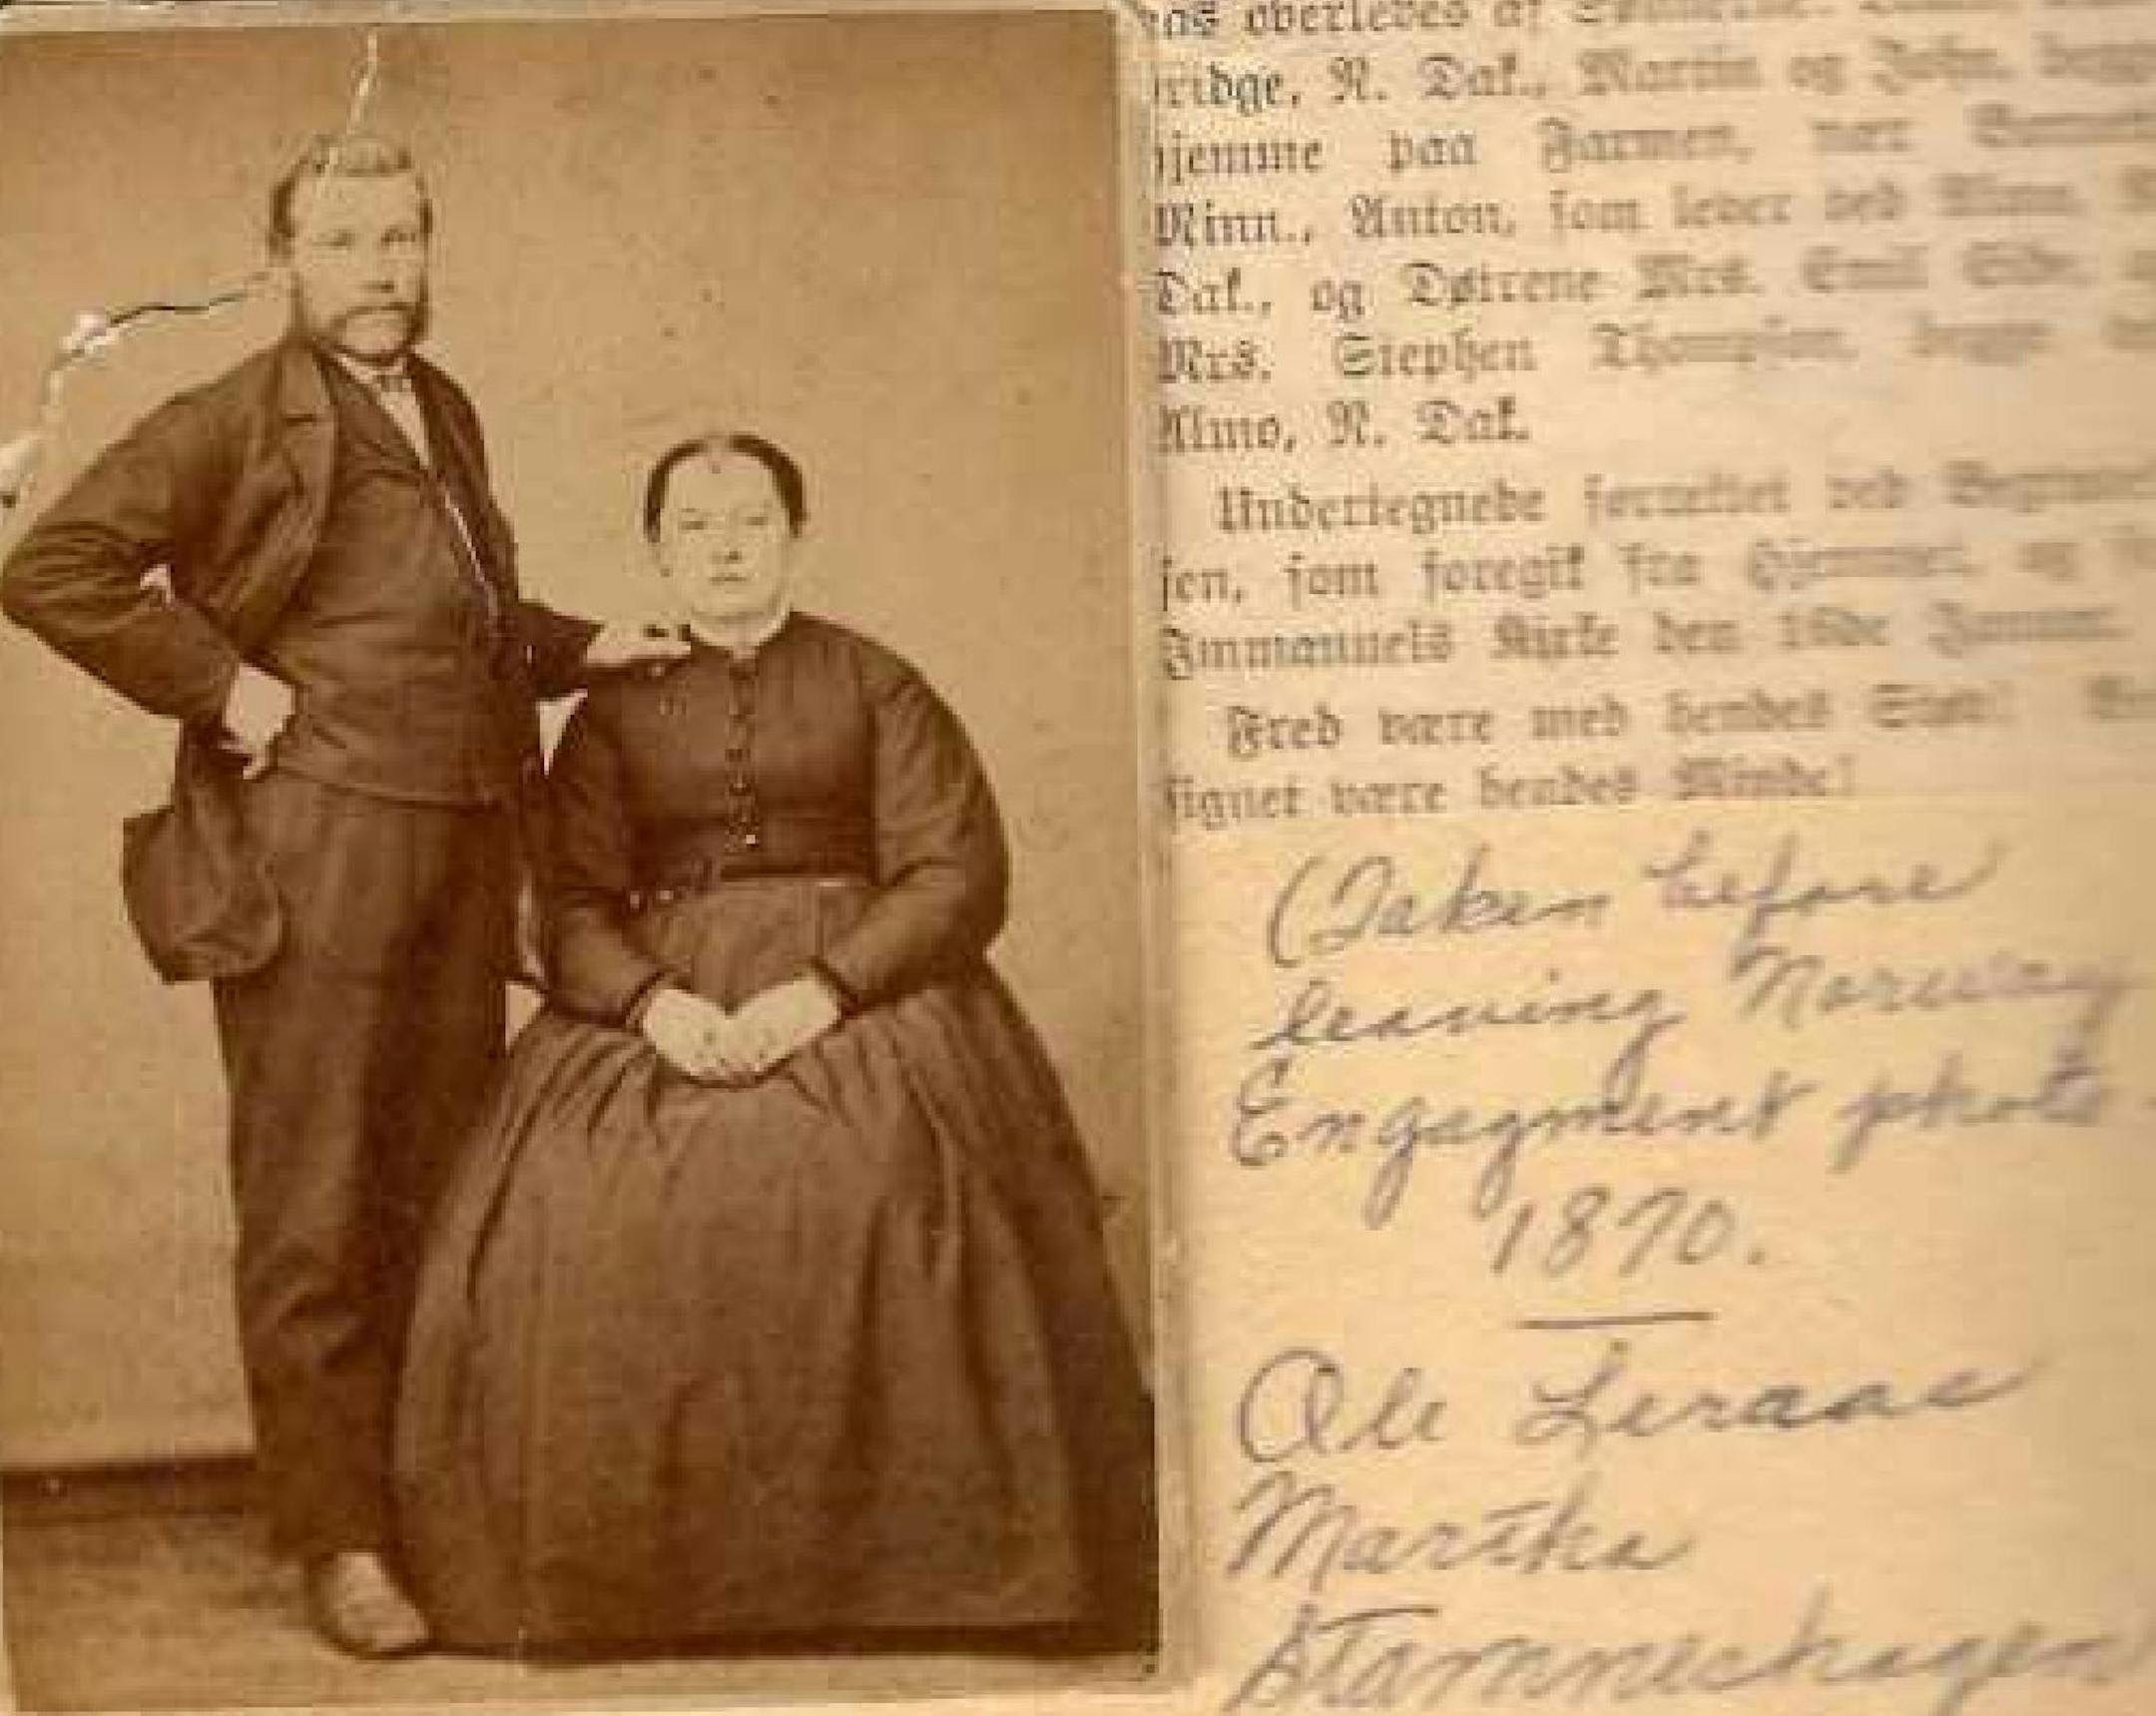 overleves af
ridge, N. Dak., Martin og John,
hjemme paa Farmen, nær
Minn., Anton, som lever ved Almo,
Dak., og Døtrene Mrs. Emil
Mrs. Stephen Thompson, begge
Almo, N. Dak.
Undertegnede forrettet ved
sen, som foregik fra Hjemmet og
Immanuels Kirke den 16de Januar.
Fred være med hendes Støv!
signet være hendes Minde!
(Taken before
leaving Norway
Engagment photo.
1870.
Ole Leraas
Martha
Stamneshagen